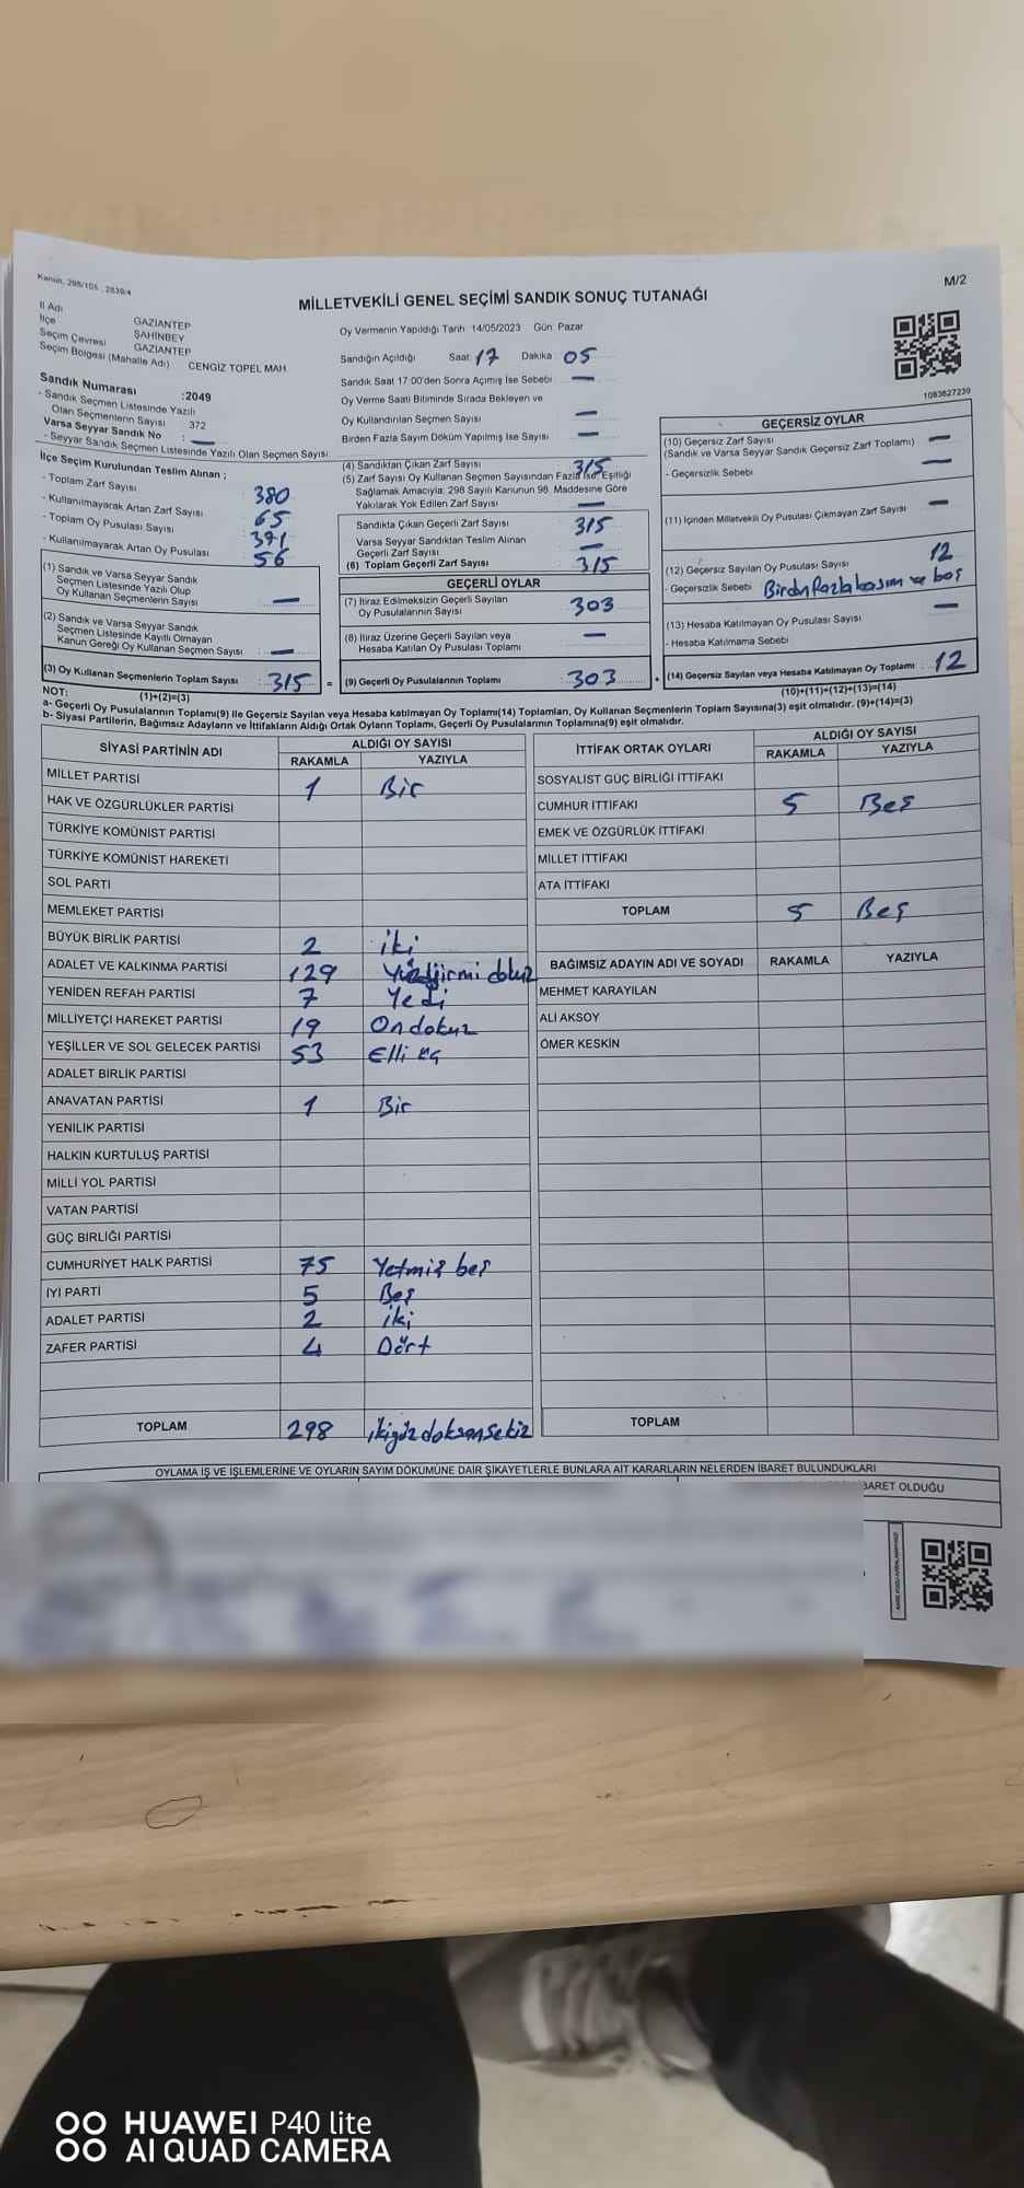 Kanun, 298/105 , 2839/4
M/2
MİLLETVEKİLİ GENEL SEÇİMİ SANDIK SONUÇ TUTANAĞI
İl Adı GAZİANTEP
İlçe ŞAHİNBEY
Seçim Çevresi GAZİANTEP
Seçim Bölgesi (Mahalle Adı) CENGİZ TOPEL MAH.
Sandık Numarası :2049
- Sandık Seçmen Listesinde Yazılı
Olan Seçmenlerin Sayısı 372
Varsa Seyyar Sandık No : —
- Seyyar Sandık Seçmen Listesinde Yazılı Olan Seçmen Sayısı
Oy Vermenin Yapıldığı Tarih 14/05/2023 Gün Pazar
Sandığın Açıldığı Saat 17 Dakika 05
Sandık Saat 17:00'den Sonra Açılmış İse Sebebi —
Oy Verme Saati Bitiminde Sırada Bekleyen ve
Oy Kullandırılan Seçmen Sayısı —
Birden Fazla Sayım Döküm Yapılmış İse Sayısı —
1083627239
İlçe Seçim Kurulundan Teslim Alınan ;
- Toplam Zarf Sayısı 380
- Kullanılmayarak Artan Zarf Sayısı 65
- Toplam Oy Pusulası Sayısı 371
- Kullanılmayarak Artan Oy Pusulası 56
(1) Sandık ve Varsa Seyyar Sandık
Seçmen Listesinde Yazılı Olup
Oy Kullanan Seçmenlerin Sayısı —
(2) Sandık ve Varsa Seyyar Sandık
Seçmen Listesinde Kayıtlı Olmayan
Kanun Gereği Oy Kullanan Seçmen Sayısı : —
(3) Oy Kullanan Seçmenlerin Toplam Sayısı : 315 =
(1)+(2)=(3)
(4) Sandıktan Çıkan Zarf Sayısı 315
(5) Zarf Sayısı Oy Kullanan Seçmen Sayısından Fazla İse, Eşitliği
Sağlamak Amacıyla; 298 Sayılı Kanunun 98. Maddesine Göre
Yakılarak Yok Edilen Zarf Sayısı —
Sandıkta Çıkan Geçerli Zarf Sayısı 315
Varsa Seyyar Sandıktan Teslim Alınan
Geçerli Zarf Sayısı —
(6) Toplam Geçerli Zarf Sayısı 315
GEÇERLİ OYLAR
(7) İtiraz Edilmeksizin Geçerli Sayılan
Oy Pusulalarının Sayısı 303
(8) İtiraz Üzerine Geçerli Sayılan veya
Hesaba Katılan Oy Pusulası Toplamı —
(9) Geçerli Oy Pusulalarının Toplamı 303 +
GEÇERSİZ OYLAR
(10) Geçersiz Zarf Sayısı —
(Sandık ve Varsa Seyyar Sandık Geçersiz Zarf Toplamı)
- Geçersizlik Sebebi —
(11) İçinden Milletvekili Oy Pusulası Çıkmayan Zarf Sayısı —
(12) Geçersiz Sayılan Oy Pusulası Sayısı 12
- Geçersizlik Sebebi Birden fazla basım ve boş
(13) Hesaba Katılmayan Oy Pusulası Sayısı —
- Hesaba Katılmama Sebebi
(14) Geçersiz Sayılan veya Hesaba Katılmayan Oy Toplamı : 12
(10)+(11)+(12)+(13)=(14)
NOT:
a- Geçerli Oy Pusulalarının Toplamı(9) ile Geçersiz Sayılan veya Hesaba katılmayan Oy Toplamı(14) Toplamları, Oy Kullanan Seçmenlerin Toplam Sayısına(3) eşit olmalıdır. (9)+(14)=(3)
b- Siyasi Partilerin, Bağımsız Adayların ve İttifakların Aldığı Ortak Oyların Toplamı, Geçerli Oy Pusulalarının Toplamına(9) eşit olmalıdır.
SİYASİ PARTİNİN ADI ALDIĞI OY SAYISI
RAKAMLA YAZIYLA
MİLLET PARTİSİ 1 Bir
HAK VE ÖZGÜRLÜKLER PARTİSİ
TÜRKİYE KOMÜNİST PARTİSİ
TÜRKİYE KOMÜNİST HAREKETİ
SOL PARTİ
MEMLEKET PARTİSİ
BÜYÜK BİRLİK PARTİSİ 2 iki
ADALET VE KALKINMA PARTİSİ 129 Yüzyirmi dokuz
YENİDEN REFAH PARTİSİ 7 Yedi
MİLLİYETÇİ HAREKET PARTİSİ 19 Ondokuz
YEŞİLLER VE SOL GELECEK PARTİSİ 53 Elli üç
ADALET BİRLİK PARTİSİ
ANAVATAN PARTİSİ 1 Bir
YENİLİK PARTİSİ
HALKIN KURTULUŞ PARTİSİ
MİLLİ YOL PARTİSİ
VATAN PARTİSİ
GÜÇ BİRLİĞİ PARTİSİ
CUMHURİYET HALK PARTİSİ 75 Yetmiş beş
İYİ PARTİ 5 Beş
ADALET PARTİSİ 2 iki
ZAFER PARTİSİ 4 Dört
TOPLAM 298 ikiyüz doksan sekiz
İTTİFAK ORTAK OYLARI ALDIĞI OY SAYISI
RAKAMLA YAZIYLA
SOSYALİST GÜÇ BİRLİĞİ İTTİFAKI
CUMHUR İTTİFAKI 5 Beş
EMEK VE ÖZGÜRLÜK İTTİFAKI
MİLLET İTTİFAKI
ATA İTTİFAKI
TOPLAM 5 Beş
BAĞIMSIZ ADAYIN ADI VE SOYADI RAKAMLA YAZIYLA
MEHMET KARAYILAN
ALİ AKSOY
ÖMER KESKİN
TOPLAM
OYLAMA İŞ VE İŞLEMLERİNE VE OYLARIN SAYIM DÖKÜMÜNE DAİR ŞİKAYETLERLE BUNLARA AİT KARARLARIN NELERDEN İBARET BULUNDUKLARI
BARET OLDUĞU
HUAWEI P40 lite
AI QUAD CAMERA